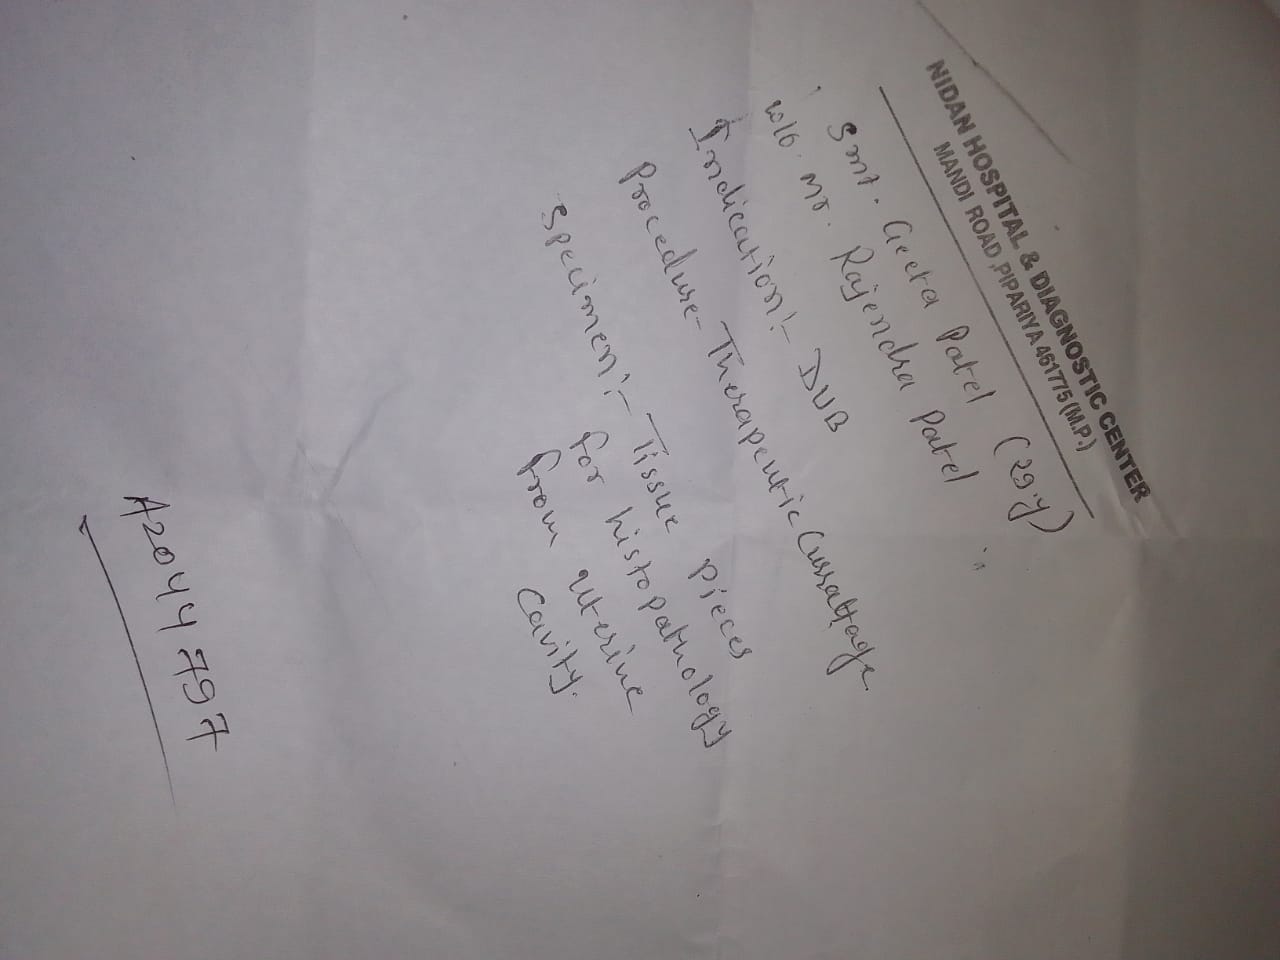 NIDAN HOSPITAL & DIAGNOSTIC CENTER
MANDI ROAD ,PIPARIYA 461775 (M.P.)
Smt. Geeta Patel (29 y)
w/o. Mr. Rajendra Patel
Indication:- DUB
Procedure- Therapeutic Currattage
Specimen:- Tissue pieces
for histopathology
from uterine
cavity.
A2044797